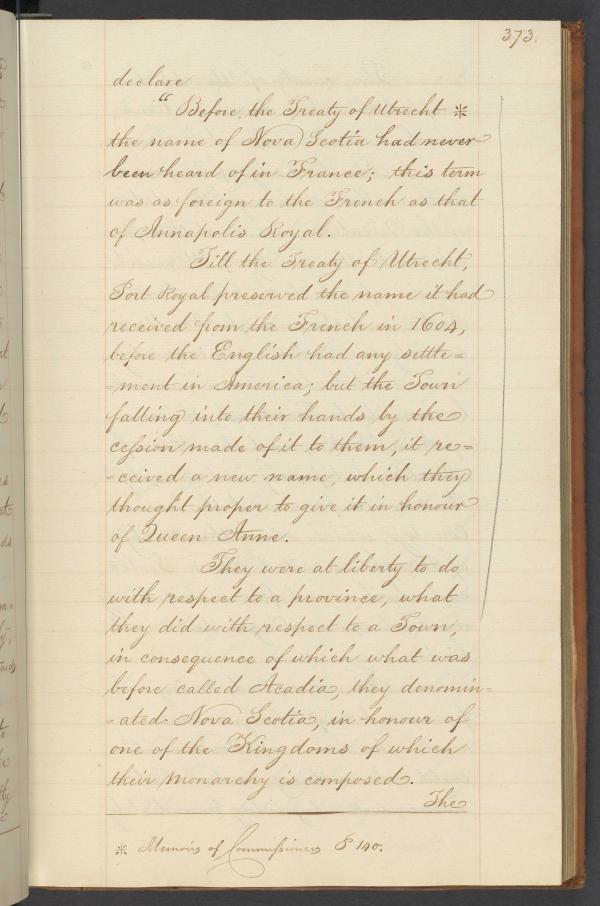 373.
declare
“Before, the Treaty of Utrecht *
the name of Nova Scotia had never
been heard of in France; this term
was as foreign to the French as that
of Annapolis Royal.
Till the Treaty of Utrecht,
Port Royal preserved the name it had
received from the French in 1604,
before the English had any settle=
=ment in America; but the Town
falling into their hands by the
cession made of it to them, it re=
=ceived a new name, which they
thought proper to give it in honour
of Queen Anne.
They were at liberty to do
with respect to a province, what
they did with respect to a Town,
in consequence of which what was
before called Acadia, they denomin=
=ated Nova Scotia, in honour of
one of the Kingdoms of which
their monarchy is composed.
The
* Memoirs of Commissioners P 140.